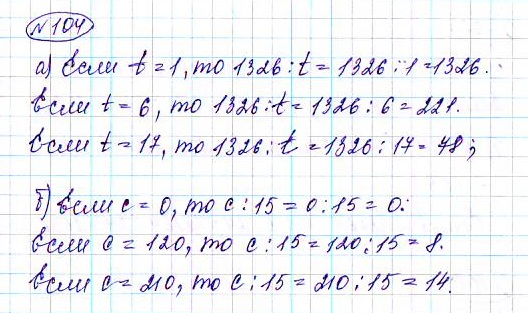 № 104
а) Если t = 1, то 1326 : t = 1326 : 1 = 1326.
Если t = 6, то 1326 : t = 1326 : 6 = 221.
Если t = 17, то 1326 : t = 1326 : 17 = 78;
б) Если c = 0, то c : 15 = 0 : 15 = 0.
Если c = 120, то c : 15 = 120 : 15 = 8.
Если c = 210, то c : 15 = 210 : 15 = 14.